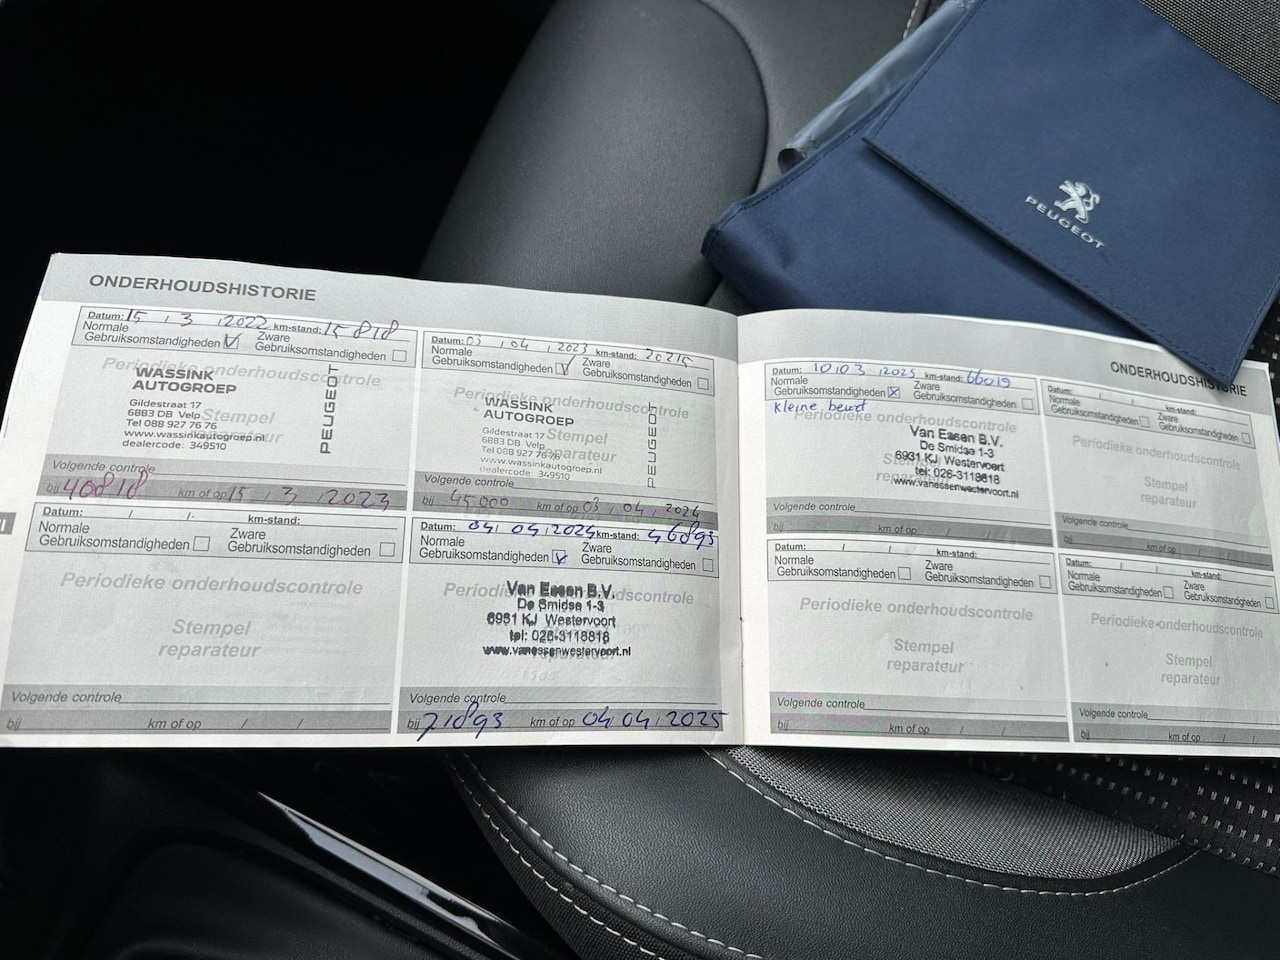 PEUGEOT
ONDERHOUDSHISTORIE
Datum: 15 / 3 / 2022 km-stand: 15818
Normale Gebruiksomstandigheden Zware Gebruiksomstandigheden
Periodieke onderhoudscontrole
Stempel reparateur
WASSINK
AUTOGROEP
PEUGEOT
Gildestraat 17
6883 DB Velp
Tel 088 927 76 76
www.wassinkautogroep.nl
dealercode: 349510
Volgende controle
bij 40818 km of op 15 / 3 / 2023
Datum: / / km-stand:
Normale Gebruiksomstandigheden Zware Gebruiksomstandigheden
Periodieke onderhoudscontrole
Stempel
reparateur
Volgende controle
bij km of op / /
Datum: 03 / 04 / 2023 km-stand: 20215
Normale Gebruiksomstandigheden Zware Gebruiksomstandigheden
Periodieke onderhoudscontrole
Stempel reparateur
WASSINK
AUTOGROEP
PEUGEOT
Gildestraat 17
6883 DB Velp
Tel 088 927 76 76
www.wassinkautogroep.nl
dealercode: 349510
Volgende controle
bij 45.000 km of op 03 / 04 / 2024
Datum: 04 / 04 / 2024 km-stand: 46893
Normale Gebruiksomstandigheden Zware Gebruiksomstandigheden
Periodieke onderhoudscontrole
Van Essen B.V.
De Smidse 1-3
6931 KJ Westervoort
tel: 026-3118818
www.vanessenwestervoort.nl
Volgende controle
bij 71893 km of op 04 / 04 / 2025
ONDERHOUDSHISTORIE
Datum: 10 / 03 / 2025 km-stand: 66019
Normale Gebruiksomstandigheden Zware Gebruiksomstandigheden
Kleine beurt
Periodieke onderhoudscontrole
Stempel reparateur
Van Essen B.V.
De Smidse 1-3
6931 KJ Westervoort
tel: 026-3118818
www.vanessenwestervoort.nl
Volgende controle
bij km of op / /
Datum: / / km-stand:
Normale Gebruiksomstandigheden Zware Gebruiksomstandigheden
Periodieke onderhoudscontrole
Stempel
reparateur
Volgende controle
bij km of op / /
Datum: / / km-stand:
Normale Gebruiksomstandigheden Zware Gebruiksomstandigheden
Periodieke onderhoudscontrole
Stempel
reparateur
Volgende controle
bij km of op / /
Datum: / / km-stand:
Normale Gebruiksomstandigheden Zware Gebruiksomstandigheden
Periodieke onderhoudscontrole
Stempel
reparateur
Volgende controle
bij km of op / /